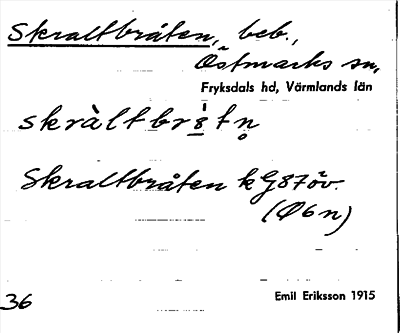 Skraltbråten, beb.,
Östmarks sn,
Fryksdals hd, Värmlands län
Skraltbråten k G87öv.
(Ö6n)
36
Emil Eriksson 1915